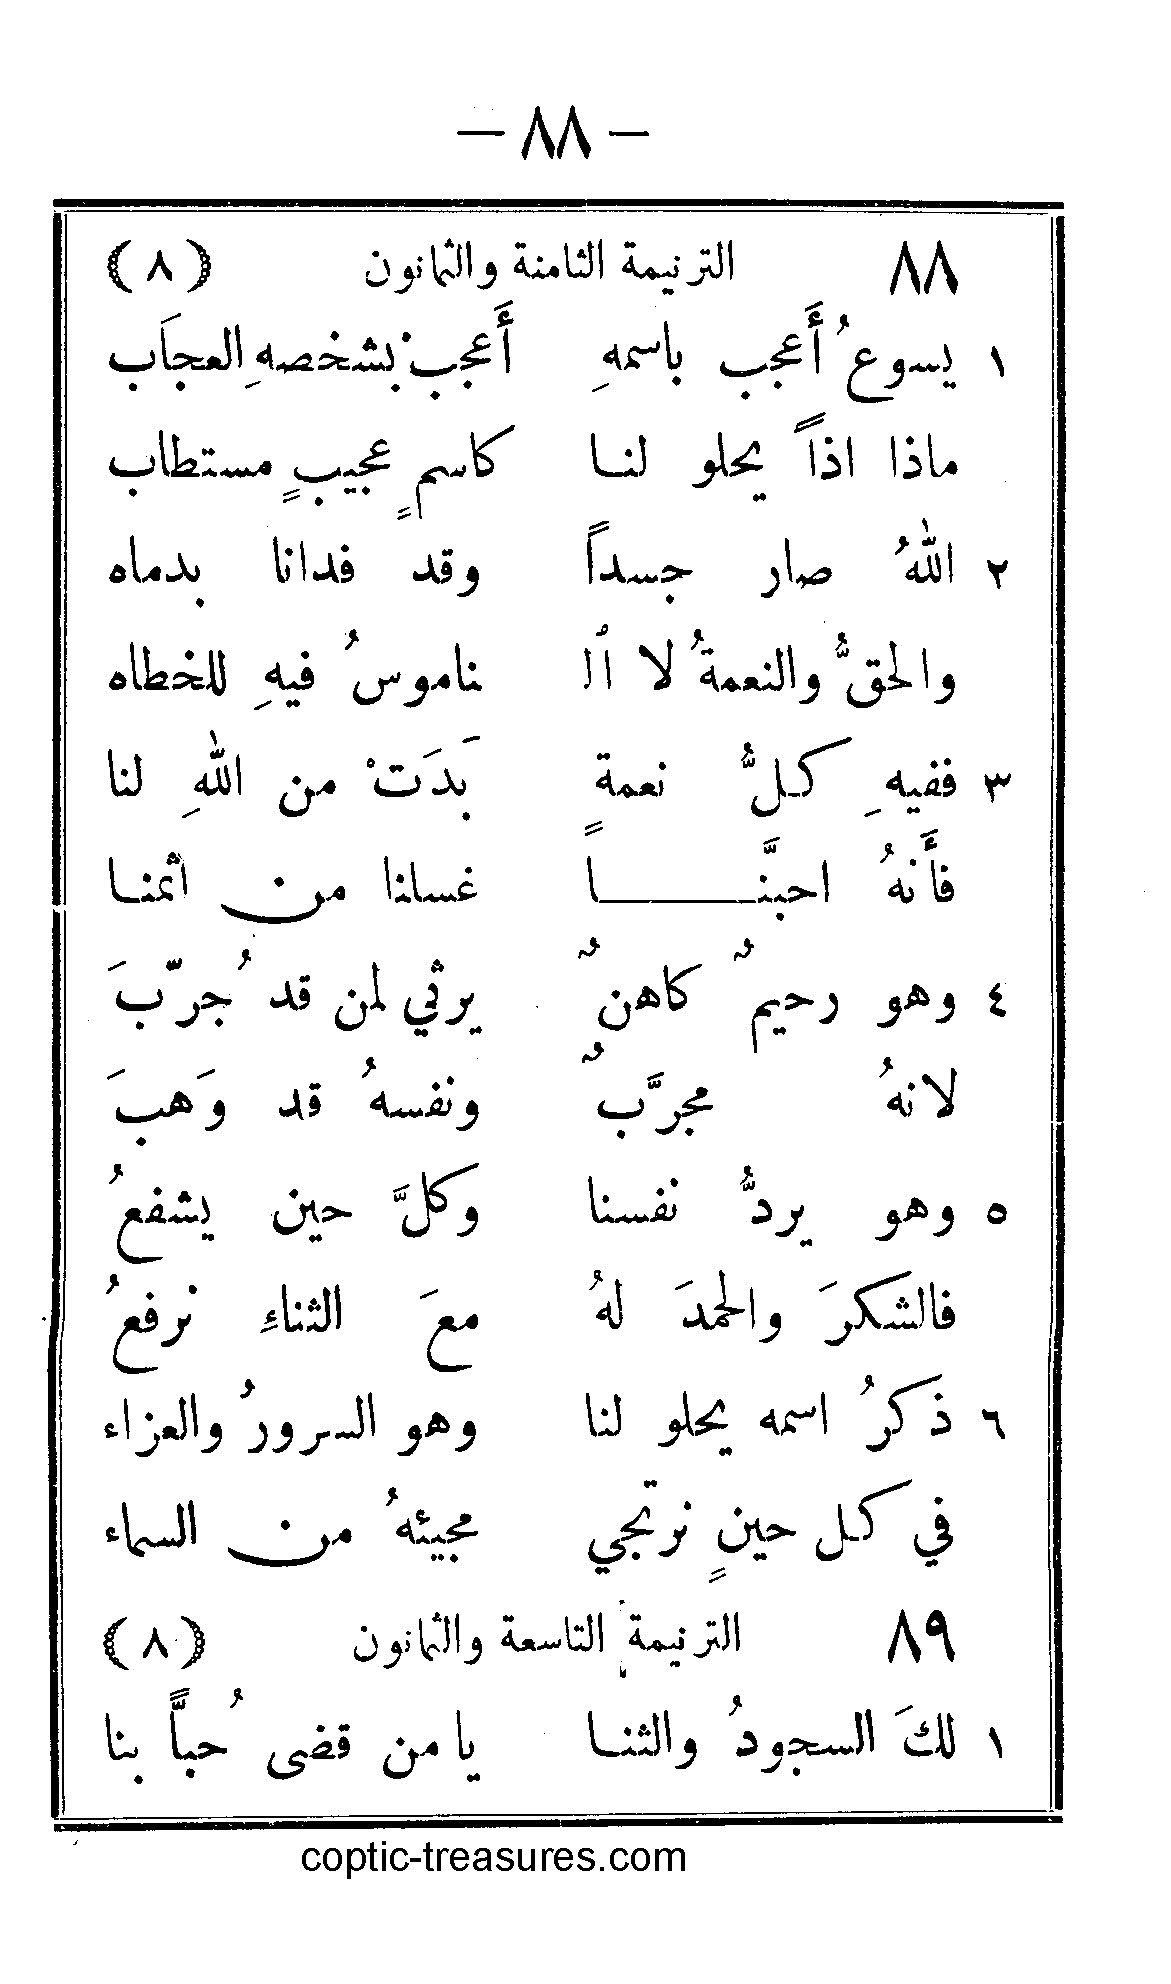 — ٨٨ —
٨٨ الترنيمة الثامنة والثمانون (٨)
١ يسوعُ أَعجب باسمهِ أَعجبْ بشخصهِ العجاَب
ماذا اذاً يحلو لنا كاسمٍ عجيبٍ مستطاب
٢ اللهُ صار جسداً وقد فدانا بدماه
والحقُّ والنعمةُ لا ٱل ناموسُ فيهِ للخطاه
٣ ففيهِ كلُّ نعمةٍ بَدَتْ من اللهِ لنا
فأَنهُ احبَّنــا غسلنا من اثمنا
٤ وهو رحيمٌ كاهنٌ يرثي لمن قد جُرّبَ
لانهُ مجرَّبٌ ونفسهُ قد وَهبَ
٥ وهو يردُّ نفسنا وكلَّ حين يشفعُ
فالشكرَ والحمدَ لهُ معَ الثناءِ نرفعُ
٦ ذكرُ اسمه يحلو لنا وهو السرورُ والعزاء
في كل حينٍ نرتجي مجيئهُ من السماء
٨٩ الترنيمة التاسعة والثمانون (٨)
١ لكَ السجودُ والثنا يا من قضى حباًّ بنا
coptic-treasures.com